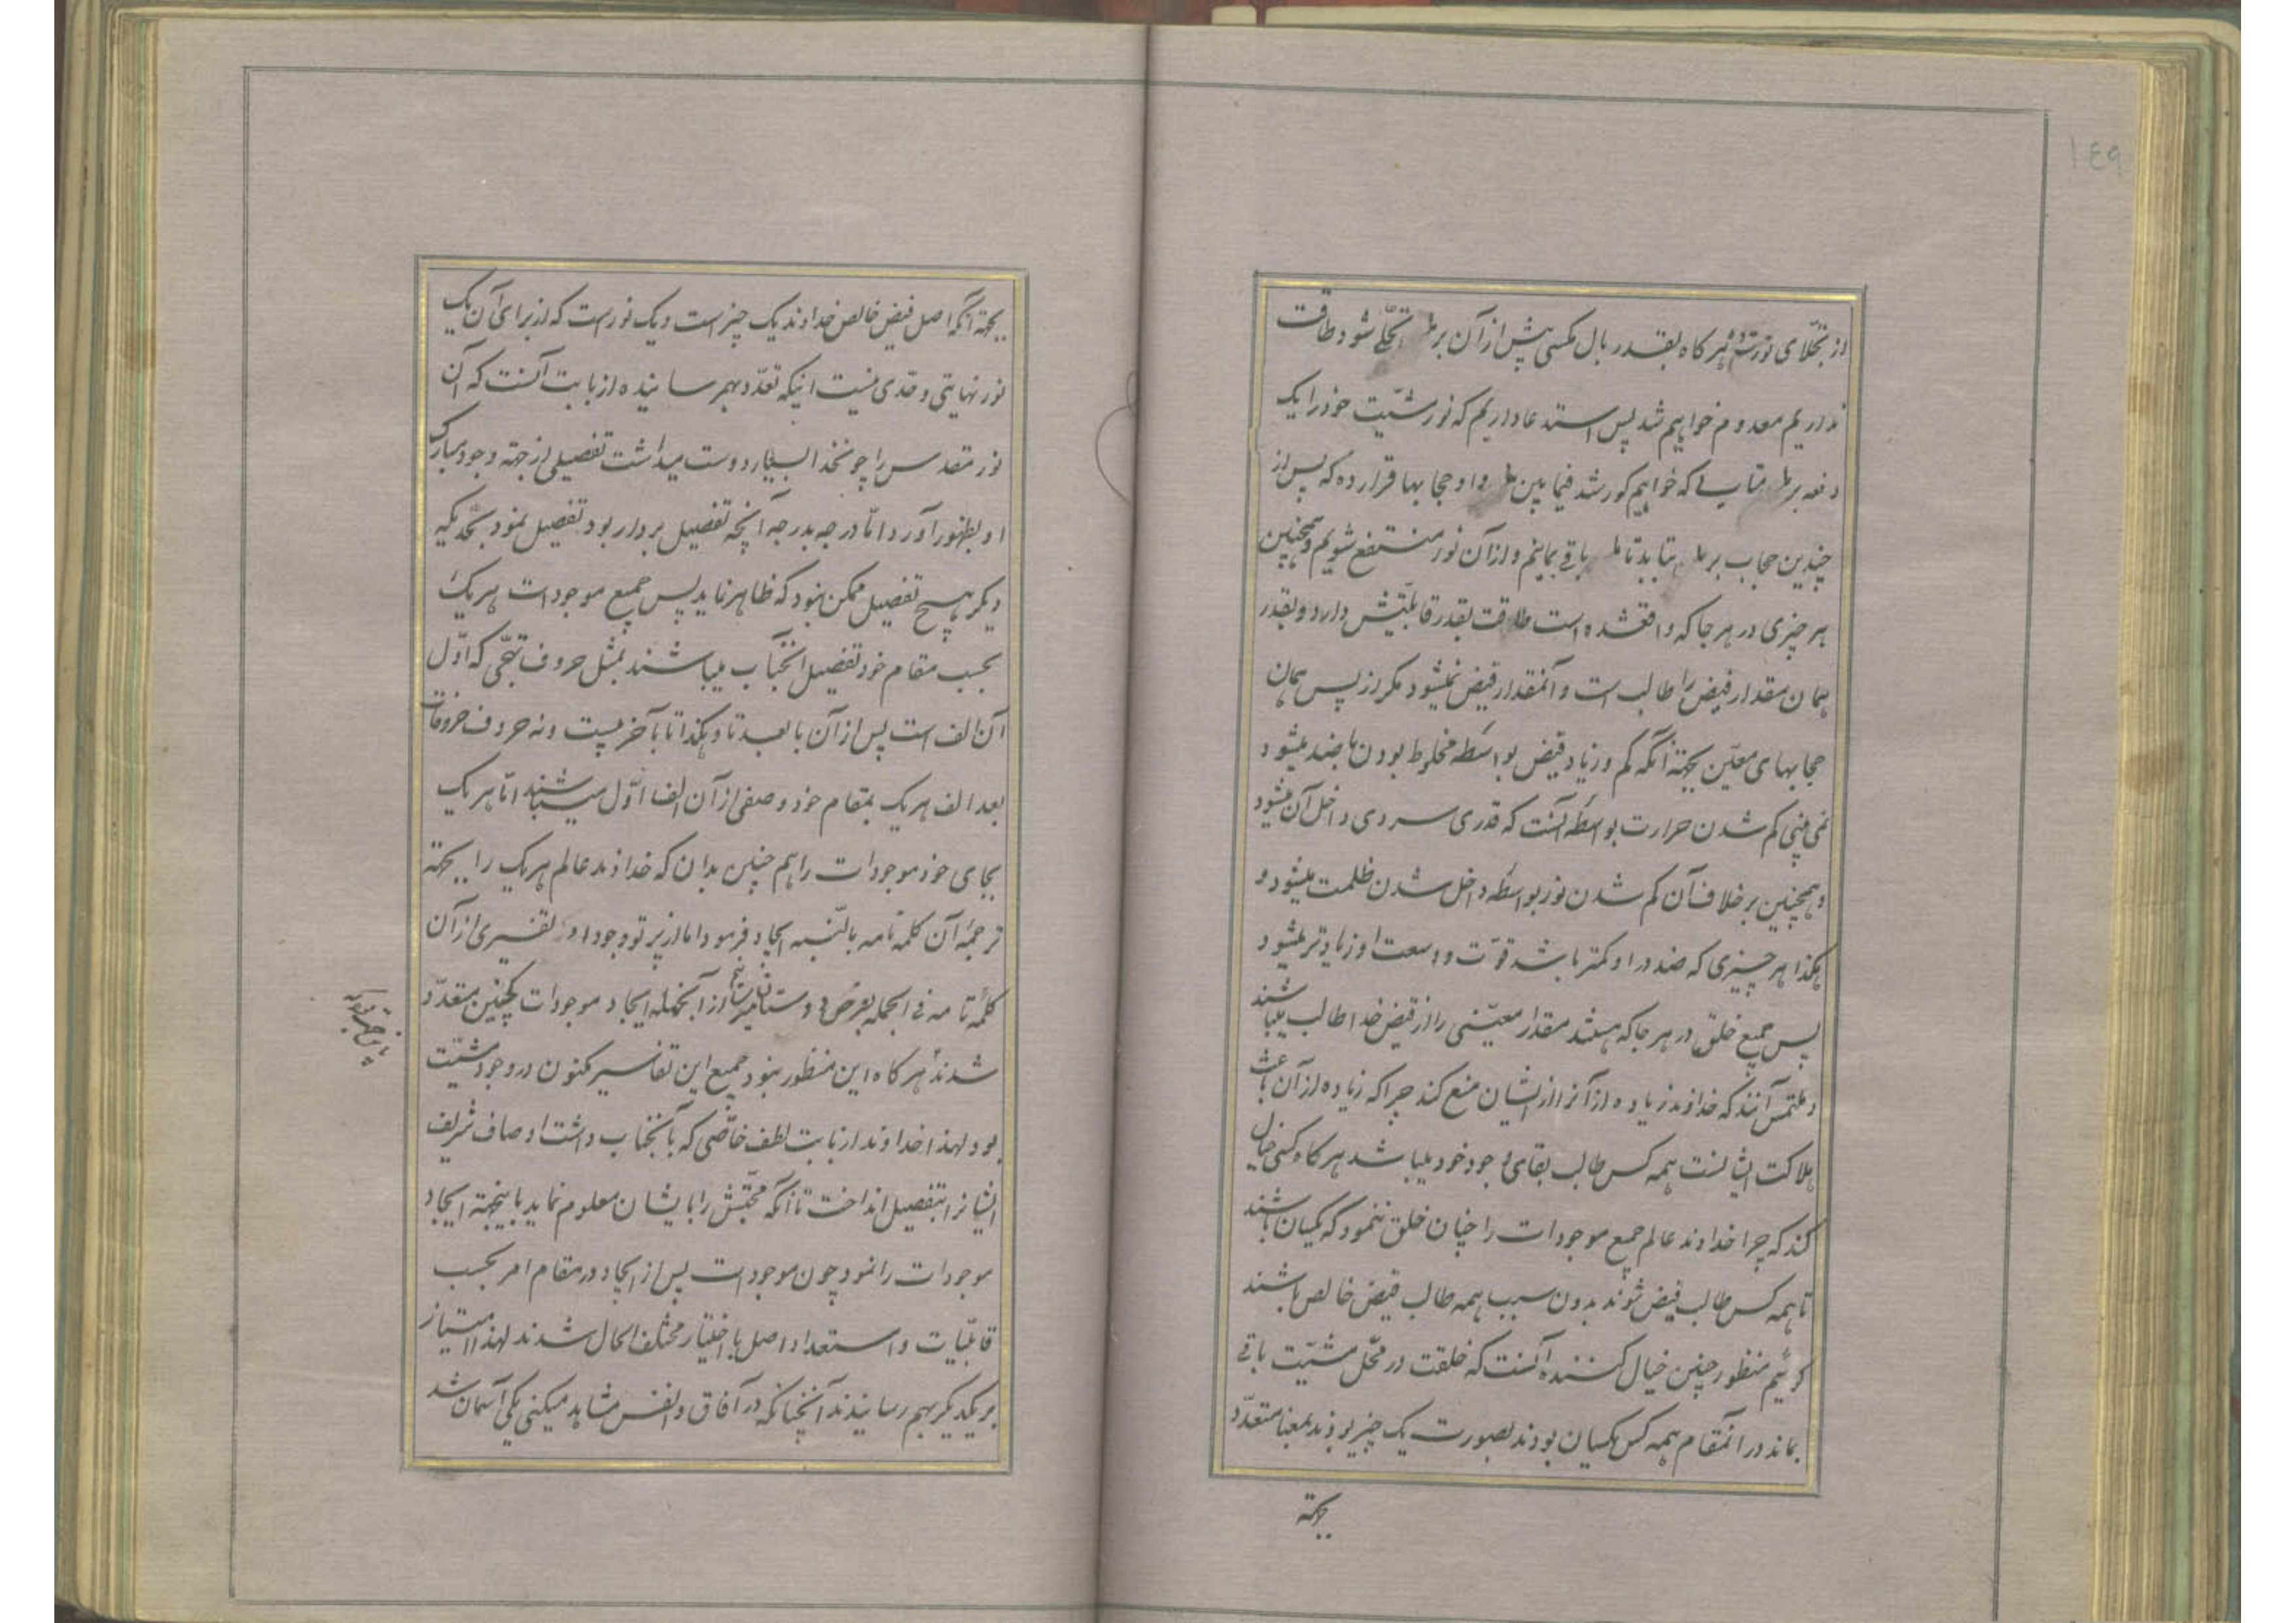 ۱۴۹
از تجلای نور تو هرگاه بقدر بال مکسی پیش از آن بر تجلی شود طاقت
نداریم معدوم خواهیم شد پس استدعا داریم که نور مشیت خود را یک
دفعه بر متاب که خواهیم کور شد فیما بین و او حجابها قرار ده که پس از
چندین حجاب بر بتابد تا باقی بمانیم و از آن نور منتفع شویم و همچنین
هر چیزی در هر جا که واقعشده است طاقت بقدر قابلیتش دارد و بقدر
همان مقدار فیض را طالب است و آنمقدار فیض نمیشود مکر از پس همان
حجابهای معین بجهة آنکه کم و زیاد فیض بواسطه مخلوط بودن با ضد میشود
نمی بینی کم شدن حرارت بواسطه آنست که قدری سردی داخل آن میشود
و همچنین بر خلاف آن کم شدن نور بواسطه داخل شدن ظلمت میشود و
هکذا هر چیزی که ضد در او کمتر باشد قوت و وسعت او زیادتر میشود
پس جمیع خلق در هر جا که هستند مقدار معینی را از فیض خدا طالب میباشند
و ملتمس آنند که خداوند زیاده از آنرا از ایشان منع کند چرا که زیاده از آن باعث
هلاکت ایشانست همه کس طالب بقای وجود خود میباشد هرکاه کسی خیال
کند که چرا خداوند عالم جمیع موجودات را چنان خلق ننمود که یکسان باشند
تا همه کس طالب فیض شوند بدون سبب همه طالب فیض خالص باشند
کوئیم منظور چنین خیال کننده آنست که خلقت در محل مشیت باقی
بماند در آنمقام همه کس یکسان بودند بصورت یک چیز بودند بمعنا متعدد
بجهة
بجهة آنکه اصل فیض خالص خداوند یک چیز است و یک نور است که از برای آن یک
نور نهایتی و حدی نیست اینکه تعدد بهم رسانیده از بابت آنست که آن
نور مقدس را چون خدا بسیار دوست میداشت تفصیلی از جهة وجود مبارک
او بظهور آورد اما درجه بدرجه آنچه تفصیل بردار بود تفصیل نمود بحدیکه
دیکر هیچ تفصیل ممکن نبود که ظاهر نماید پس جمیع موجودات هر یک
بحسب مقام خود تفصیل آنجناب میباشند بمثل حروف تهجی که اول
آن الف است پس از آن با بعد تا و هکذا تا بآخر بیست و نه حروف حروفات
بعد الف هر یک بمقام خود وصفی از آن الف اول میباشند اما هر یک
بجای خود موجودات را هم چنین بدان که خداوند عالم هر یک را بجهة
ترجمه آن کلمه تامه بالنسبه ایجاد فرمود اما از پرتو وجود او تفسیری از آن
کلمه تامه فی الجمله بعرض دوستانش از آنجمله ایجاد موجودات همچنین متعدد
شدند هرکاه این منظور نبود جمیع این تفاسیر مکنون در وجود مشیت
بود لهذا خداوند از بابت لطف خاصی که بآنجناب داشت اوصاف شریف
ایشانرا بتفصیل انداخت تا آنکه محبتش را بایشان معلوم نماید باینجهة ایجاد
موجودات را نمود چون موجودات پس از ایجاد در مقام امر بحسب
قابلیات و استعداد اصل باختیار مختلف الحال شدند لهذا امتیاز
بر یکدیکر بهم رسانیدند آنچنانکه در آفاق و انفس مشاهد میکنی یکی آسمان شد